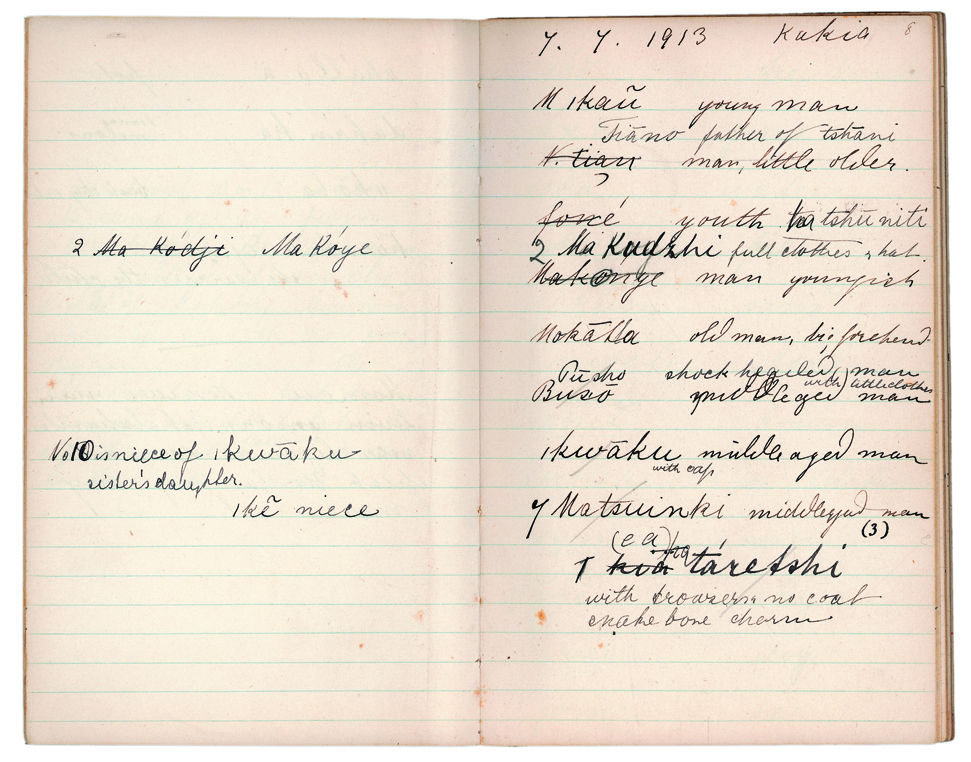 2 Ma Kódji Ma Kóye
No 10 is niece of ıkwāku
sister's daughter.
ıkẽ niece
7. 7. 1913 Kakia 8
M ıkaũ young man
Tiāno father of tshāni
N. tian man, little older.
foné youth ha tshu niti
2 Ma Kudzhi full clothes, hat.
Makonge man youngish
Mokātla old man, big forehead.
Pūsho shock headed man
Busō middleaged man with little clothes
ıkwāku middle aged man
with cap
7 Matsuinki middleaged man
(3)
(e a) ha
1 kia táretshi
with trowsers no coat
snake bone charm